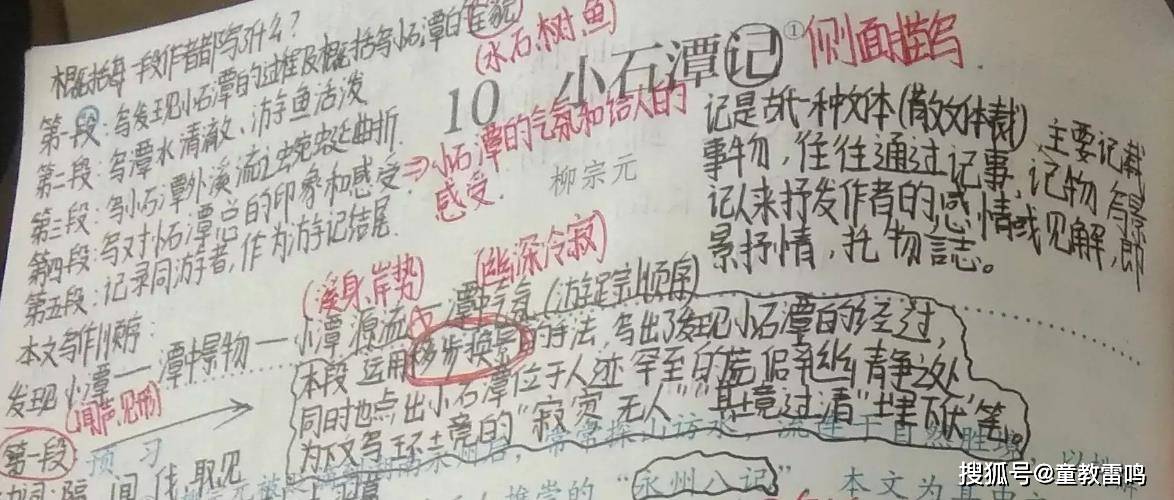 概括每一段作者都写了什么?
第一段:写发现小石潭的过程及概括写小石潭的全貌
(水、石、树、鱼)
第二段:写潭水清澈、游鱼活泼
第三段:写小石潭外溪流之蜿蜒曲折
第四段:写对小石潭总的印象和感受.
⇒小石潭的气氛和给人的
感受.
第五段:记录同游者,作为游记结尾
10 小石潭记①
侧面描写
柳宗元
记是古代一种文体(散文体裁),主要记载
事物,往往通过记事、记物、写景
记人来抒发作者的感情或见解,即
景抒情,托物言志。
本文写作顺序:
(溪身、岸势)
(幽深冷寂)
发现小潭—潭中景物—小潭源流—潭中气氛(游踪为顺序)
(闻声见形)
本段运用移步换景的手法,写出了发现小石潭的经过,
同时也点出小石潭位于人迹罕至的
为下文写环境的“寂寥无人”“其境过清”
第一段
预习
“永州八记”
本文为其中
搜狐号@童教雷鸣